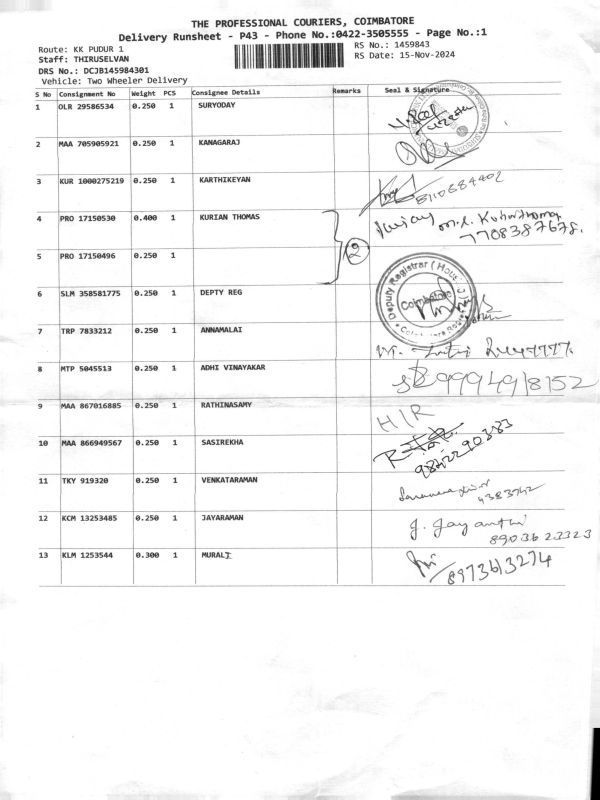 THE PROFESSIONAL COURIERS, COIMBATORE
Delivery Runsheet - P43 - Phone No.:0422-3505555 - Page No.:1
Route: KK PUDUR 1
RS No.: 1459843
Staff: THIRUSELVAN
RS Date: 15-Nov-2024
DRS No.: DCJB145984301
Vehicle: Two Wheeler Delivery
S No Consignment No Weight PCS Consignee Details Remarks Seal & Signature
1 OLR 29586534 0.250 1 SURYODAY
2 MAA 705905921 0.250 1 KANAGARAJ
3 KUR 1000275219 0.250 1 KARTHIKEYAN 8110884402
4 PRO 17150530 0.400 1 KURIAN THOMAS
7708387678.
5 PRO 17150496 0.250 1 2
6 SLM 358581775 0.250 1 DEPTY REG
Deputy Registrar (Hous
Coimbatore
7 TRP 7833212 0.250 1 ANNAMALAI
8 MTP 5045513 0.250 1 ADHI VINAYAKAR 9994918152
9 MAA 867016885 0.250 1 RATHINASAMY H/R
10 MAA 866949567 0.250 1 SASIREKHA 9842290383
11 TKY 919320 0.250 1 VENKATARAMAN
12 KCM 13253485 0.250 1 JAYARAMAN J. Jayanthi
8903623323
13 KLM 1253544 0.300 1 MURALI 8973613274